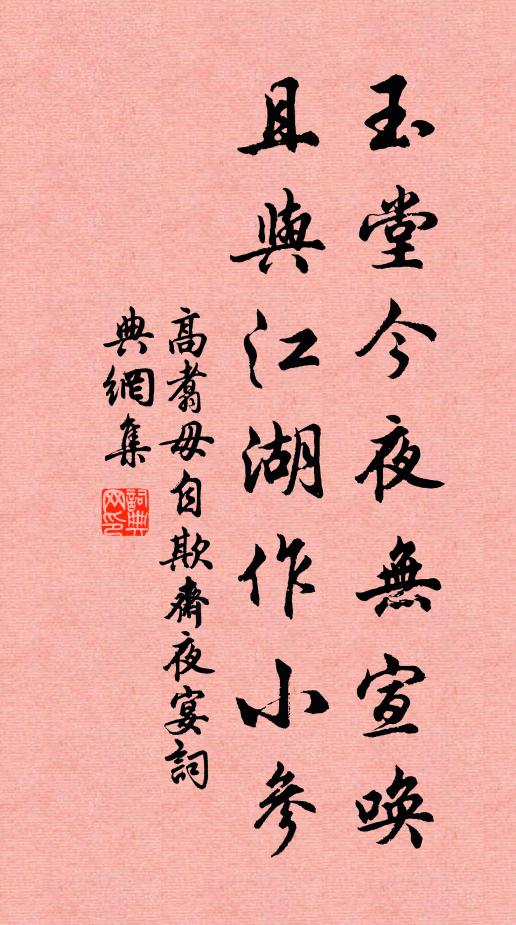 玉堂今夜無宣喚
且與江湖作小參
高翥毋自欺齋夜宴詞
典網集
詞典网印